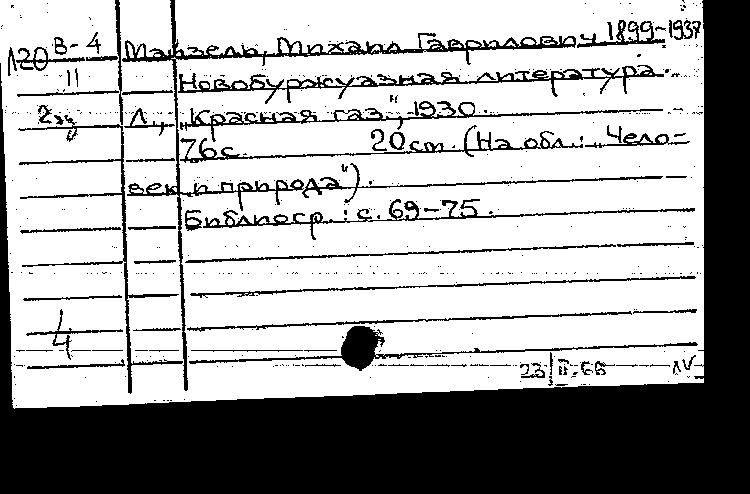 120 В-4 Майзель, Михаил Гаврилович 1899-1937
11 Новобуржуазная литература.
2экз Л., „Красная газ.", 1930.
76с. 20см. (На обл.: „Чело-
век и природа").
Библиогр.: с. 69-75.
4
23/II-66